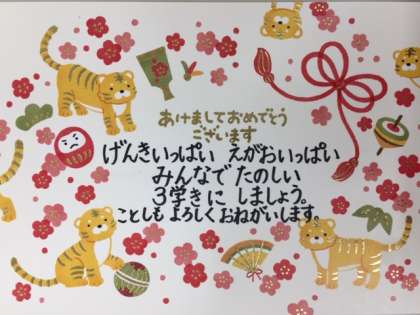 あけましておめでとう
ございます
げんきいっぱい えがおいっぱい
みんなで たのしい
3学きに しましょう。
ことしも よろしくおねがいします。